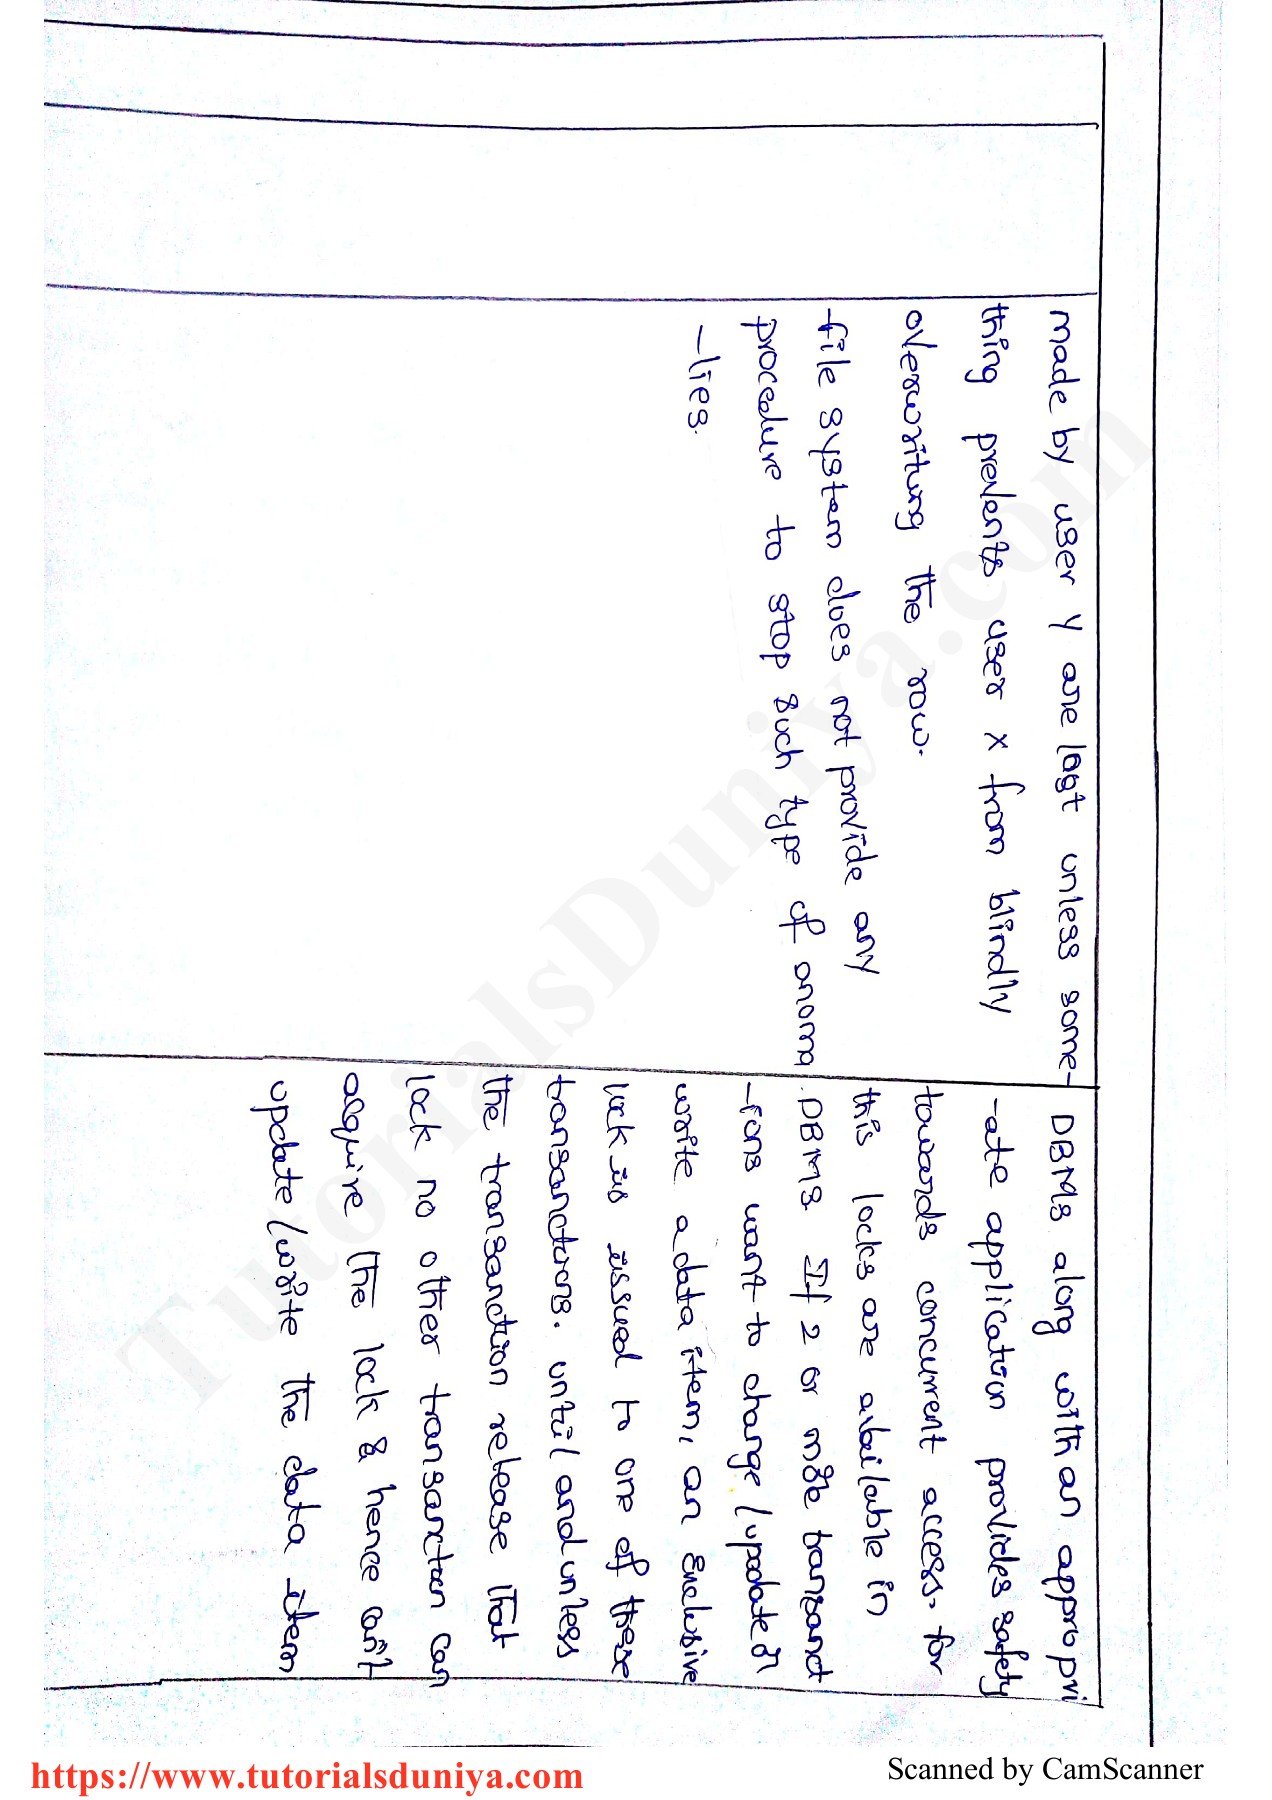 made by user Y are lost unless some-
thing prevents user X from blindly
overwriting the row.
file system does not provide any
procedure to stop such type of anoma
-lies.
DBMS along with an appropri
-ate application provides safety
towards concurrent access. for
this locks are available in
DBMS. If 2 or more transanct
-ions want to change/update or
write a data item, an Exclusive
lock is issued to one of these
transanctions. until and unless
the transanction release that
lock no other transanction can
acquire the lock & hence can't
update/write the data item
TutorialsDuniya.com
https://www.tutorialsduniya.com
Scanned by CamScanner